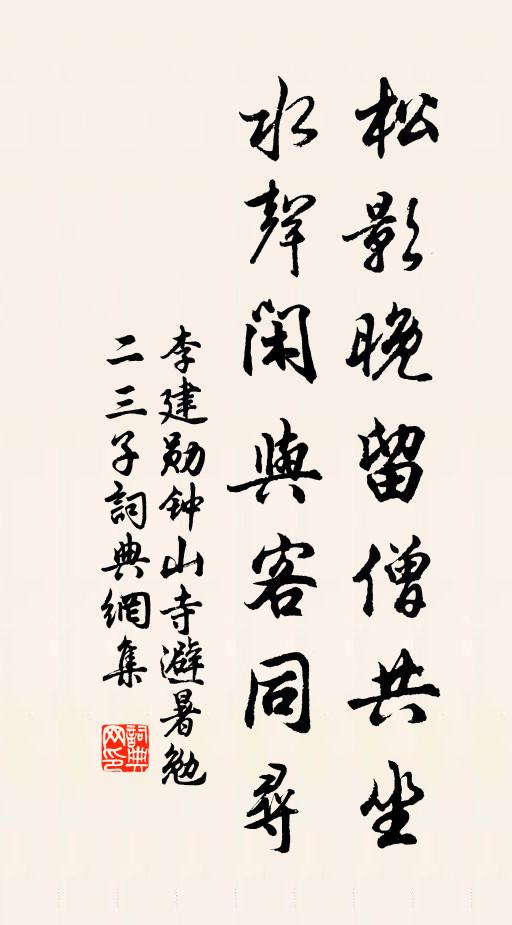 松影晚留僧共坐
水聲閑與客同尋
李建勋钟山寺避暑勉
二三子詞典網集
詞典
网印